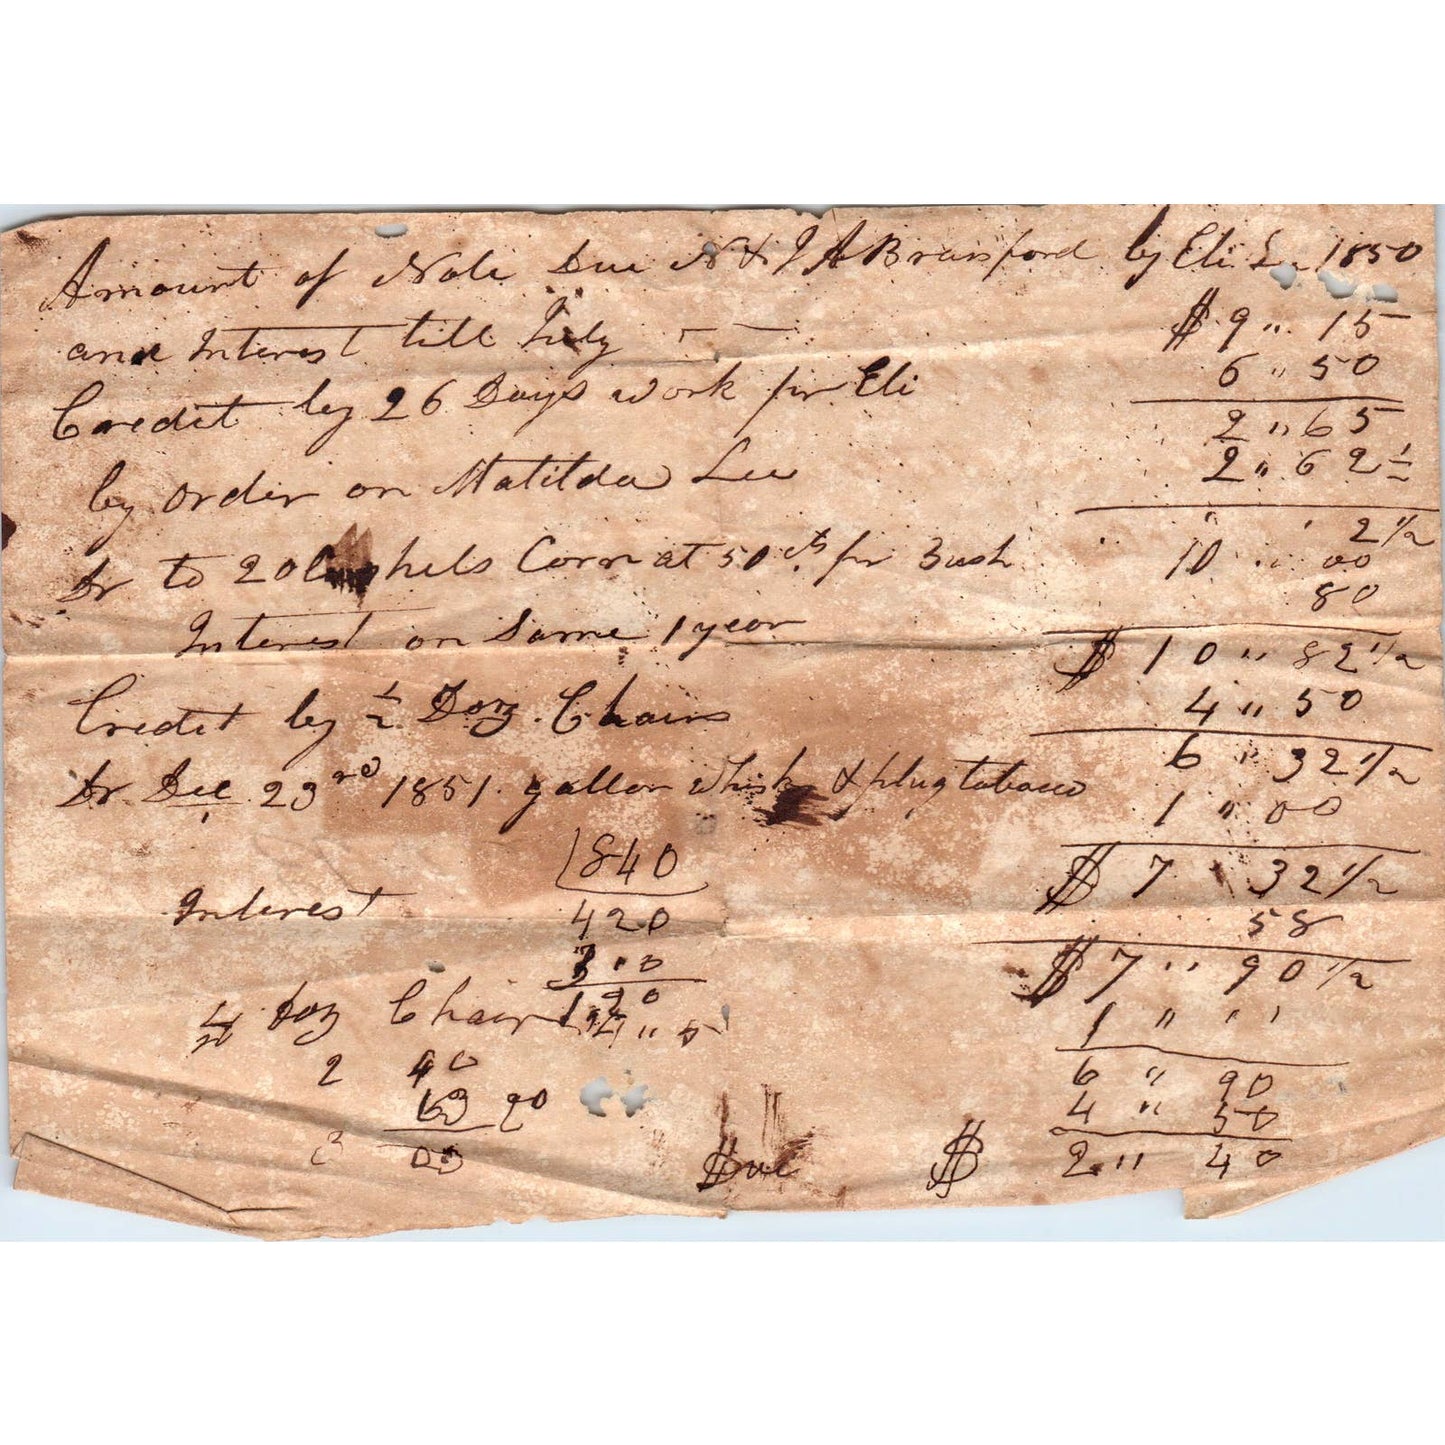 Amount of Note Due N & J A Bransford by Eli L 1850
and Interest till July $ 9 " 15
Credit by 26 Days work pr Eli 6 " 50
2 " 65
by order on Matilda Lee 2 " 62 1/2
2 1/2
Dr to 20 Bushels Corn at 50 cts pr Bush 10 " 00
Interest on Same 1 year 80
$ 10 " 82 1/2
Credit by 1/2 Doz. Chairs 4 " 50
6 " 32 1/2
Dr Dec 23rd 1851. gallon Whisky & plug tobacco 1 " 00
1840
$ 7 32 1/2
Interest 420 58
$ 7 " 90 1/2
120
Doz Chair 1 " "
2 40 6 " 90
63 90 4 " 50
3 03 Due $ 2 " 40